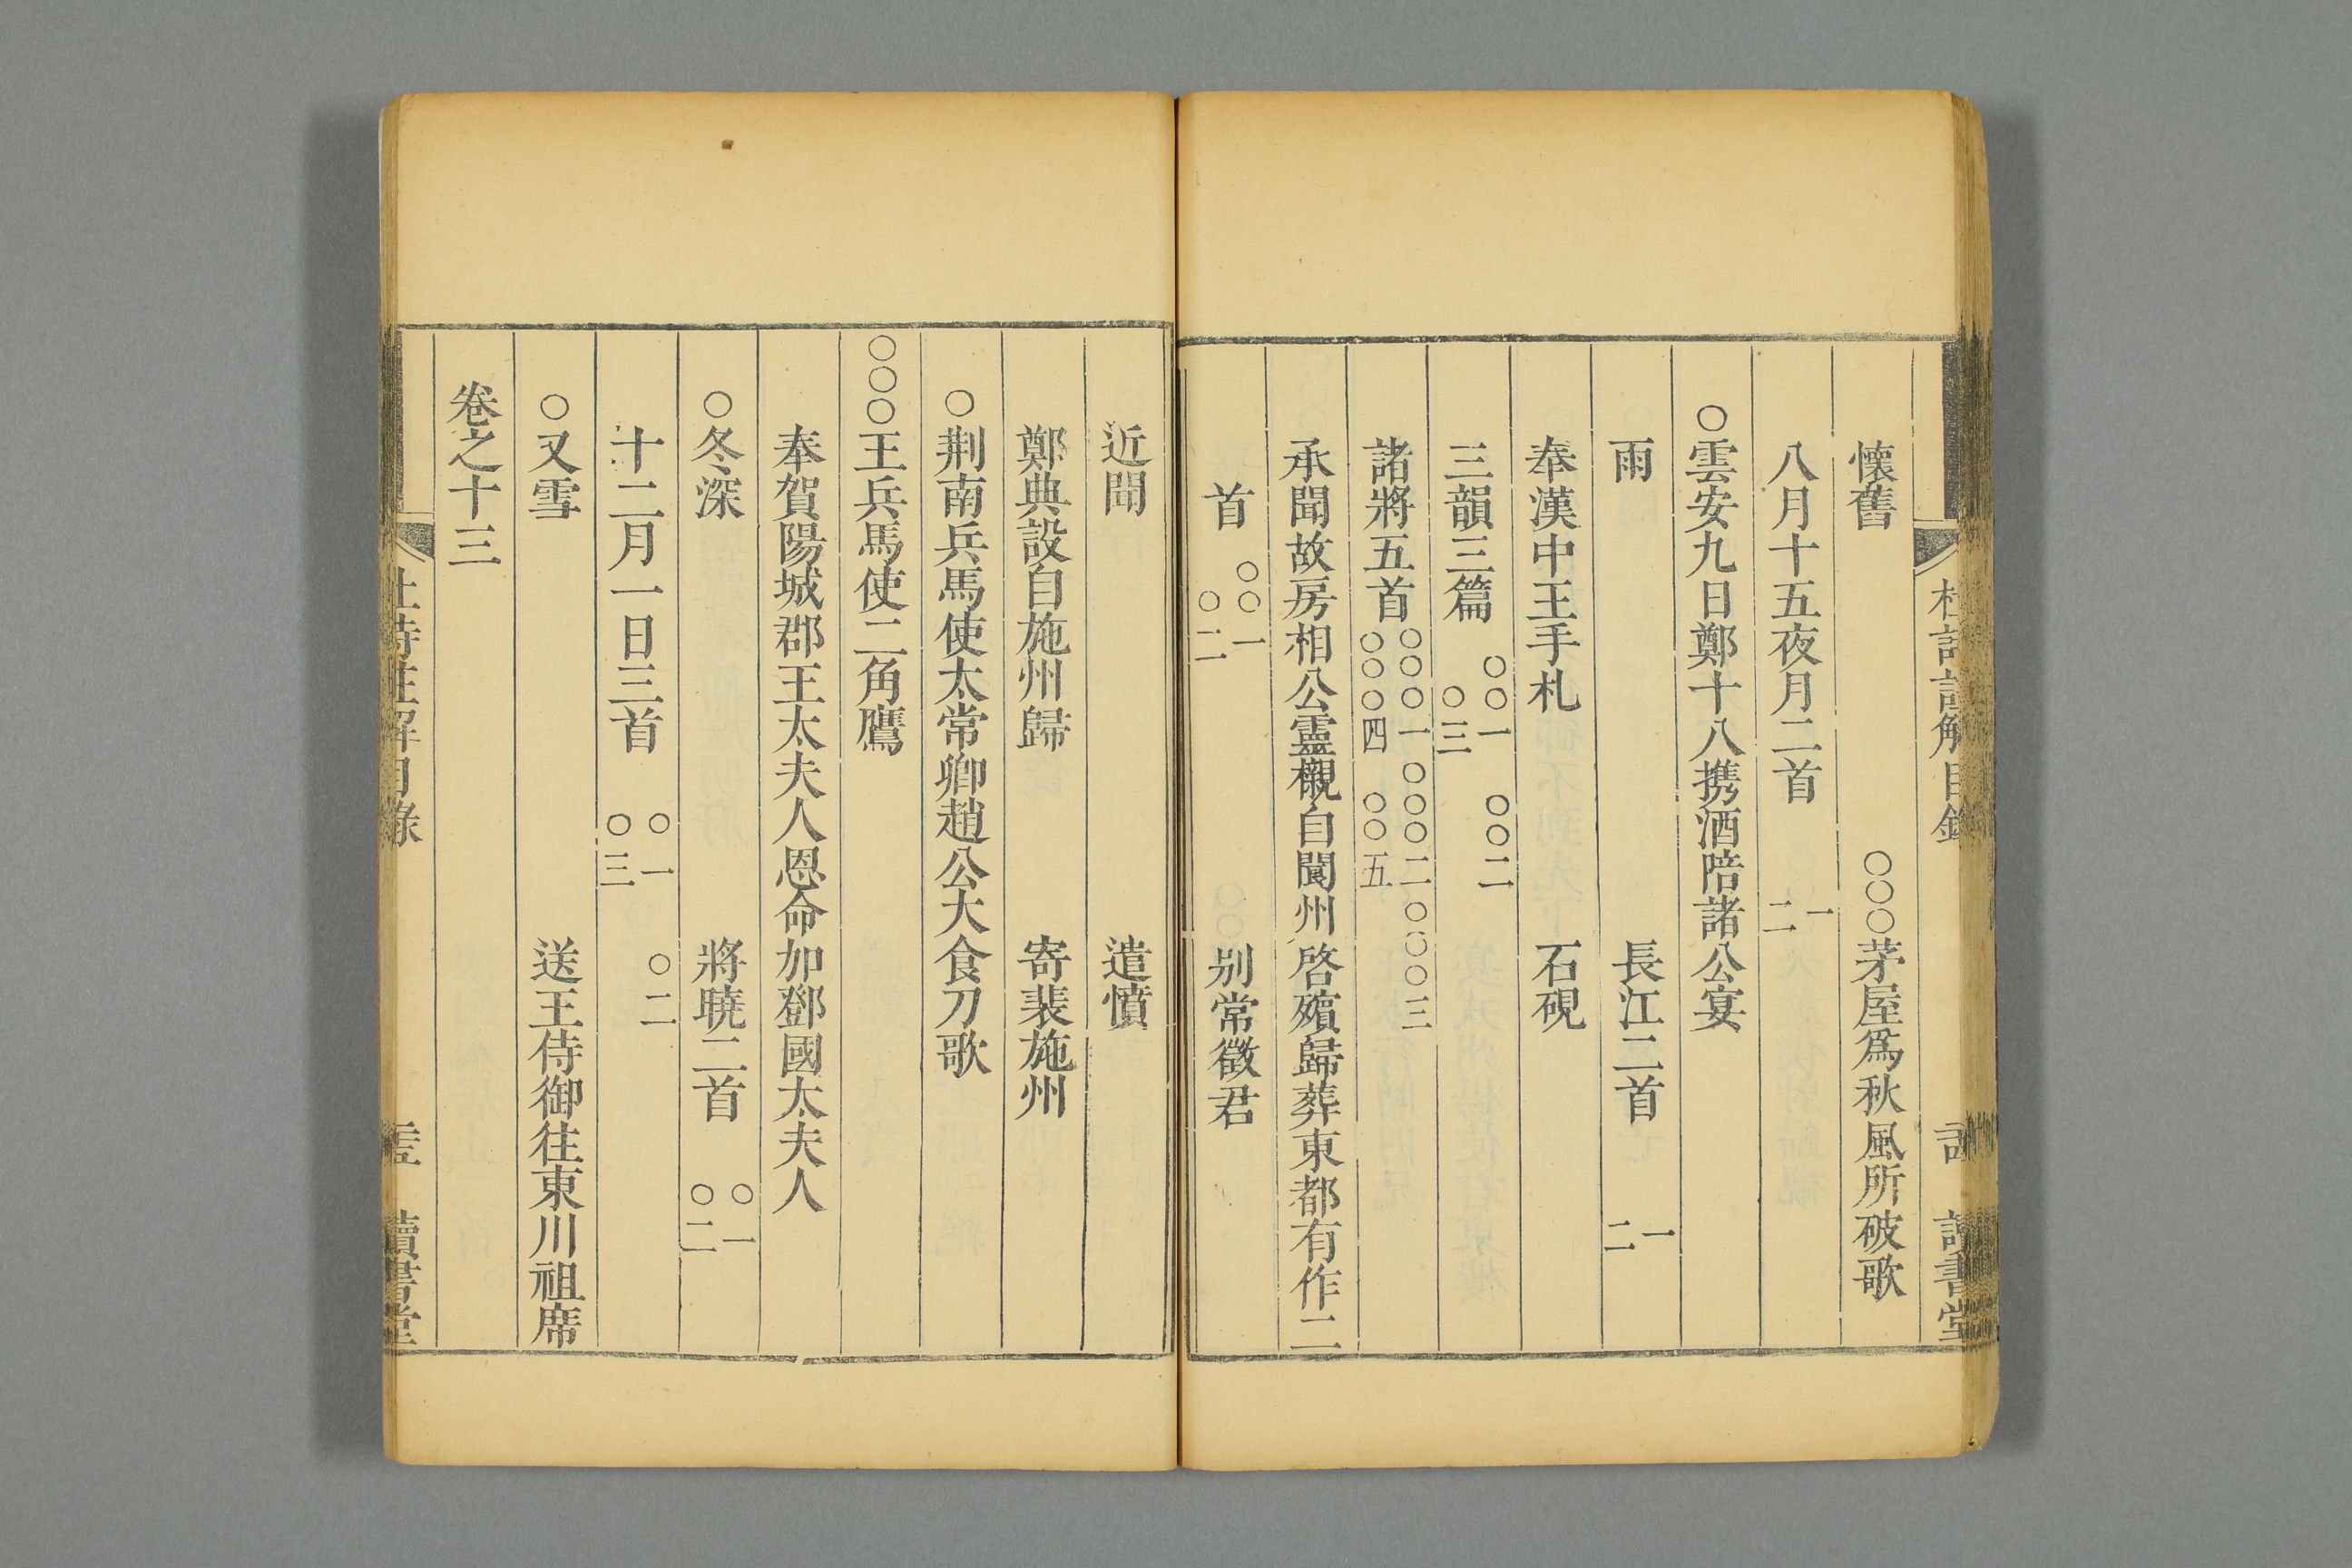 懷舊　○○○茅屋爲秋風所破歌
八月十五夜月二首　一　二
○雲安九日鄭十八携酒陪諸公宴
雨　長江二首　一　二
奉漢中王手札　石硯
三韻三篇　○○一　○○二　○三
諸將五首　○○○一　○○○二　○○○三　○○○四　○○五
承聞故房相公靈櫬自閬州啓殯歸葬東都有作二
首　○○一　○二　别常徵君
近聞　遣憤
鄭典設自施州歸　寄裴施州
○荆南兵馬使太常卿趙公大食刀歌
○○○王兵馬使二角鷹
奉賀陽城郡王太夫人恩命加鄧國太夫人
○冬深　將曉二首　○一　○二
十二月一日三首　○一　○二　○三
○又雪　送王侍御往東川祖席
卷之十三
杜詩註解目錄　讀書堂